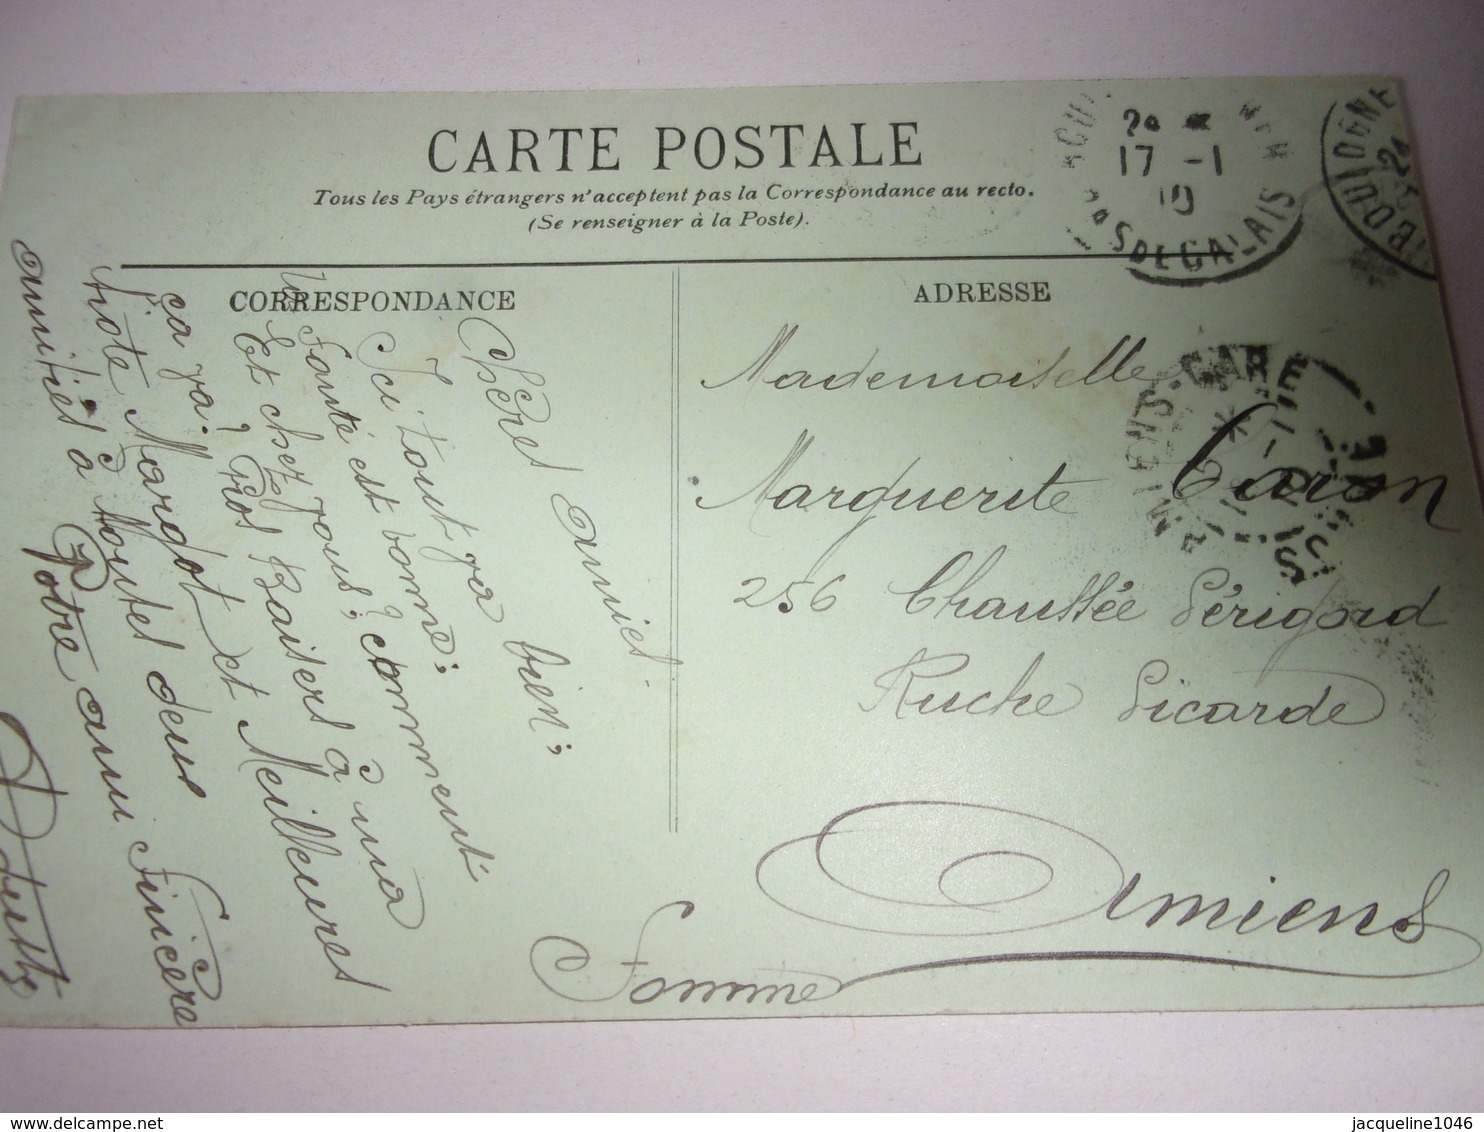 CARTE POSTALE
Tous les Pays étrangers n'acceptent pas la Correspondance au recto.
(Se renseigner à la Poste).
CORRESPONDANCE
Chères amies.
Ici tout va bien;
la Santé est bonne;
Et chez vous; comment
ça va? Gros Baisers à ma
tiote Margot et Meilleures
amitiés à Toutes deux
Votre ami Sincère
ADRESSE
Mademoiselle
Marguerite Caron
256 Chaussée Périgord
Ruche Picarde
Amiens
Somme
17 -1
10
PAS DE CALAIS
BOULOGNE
AMIENS-GARE
SOMME
jacqueline1046